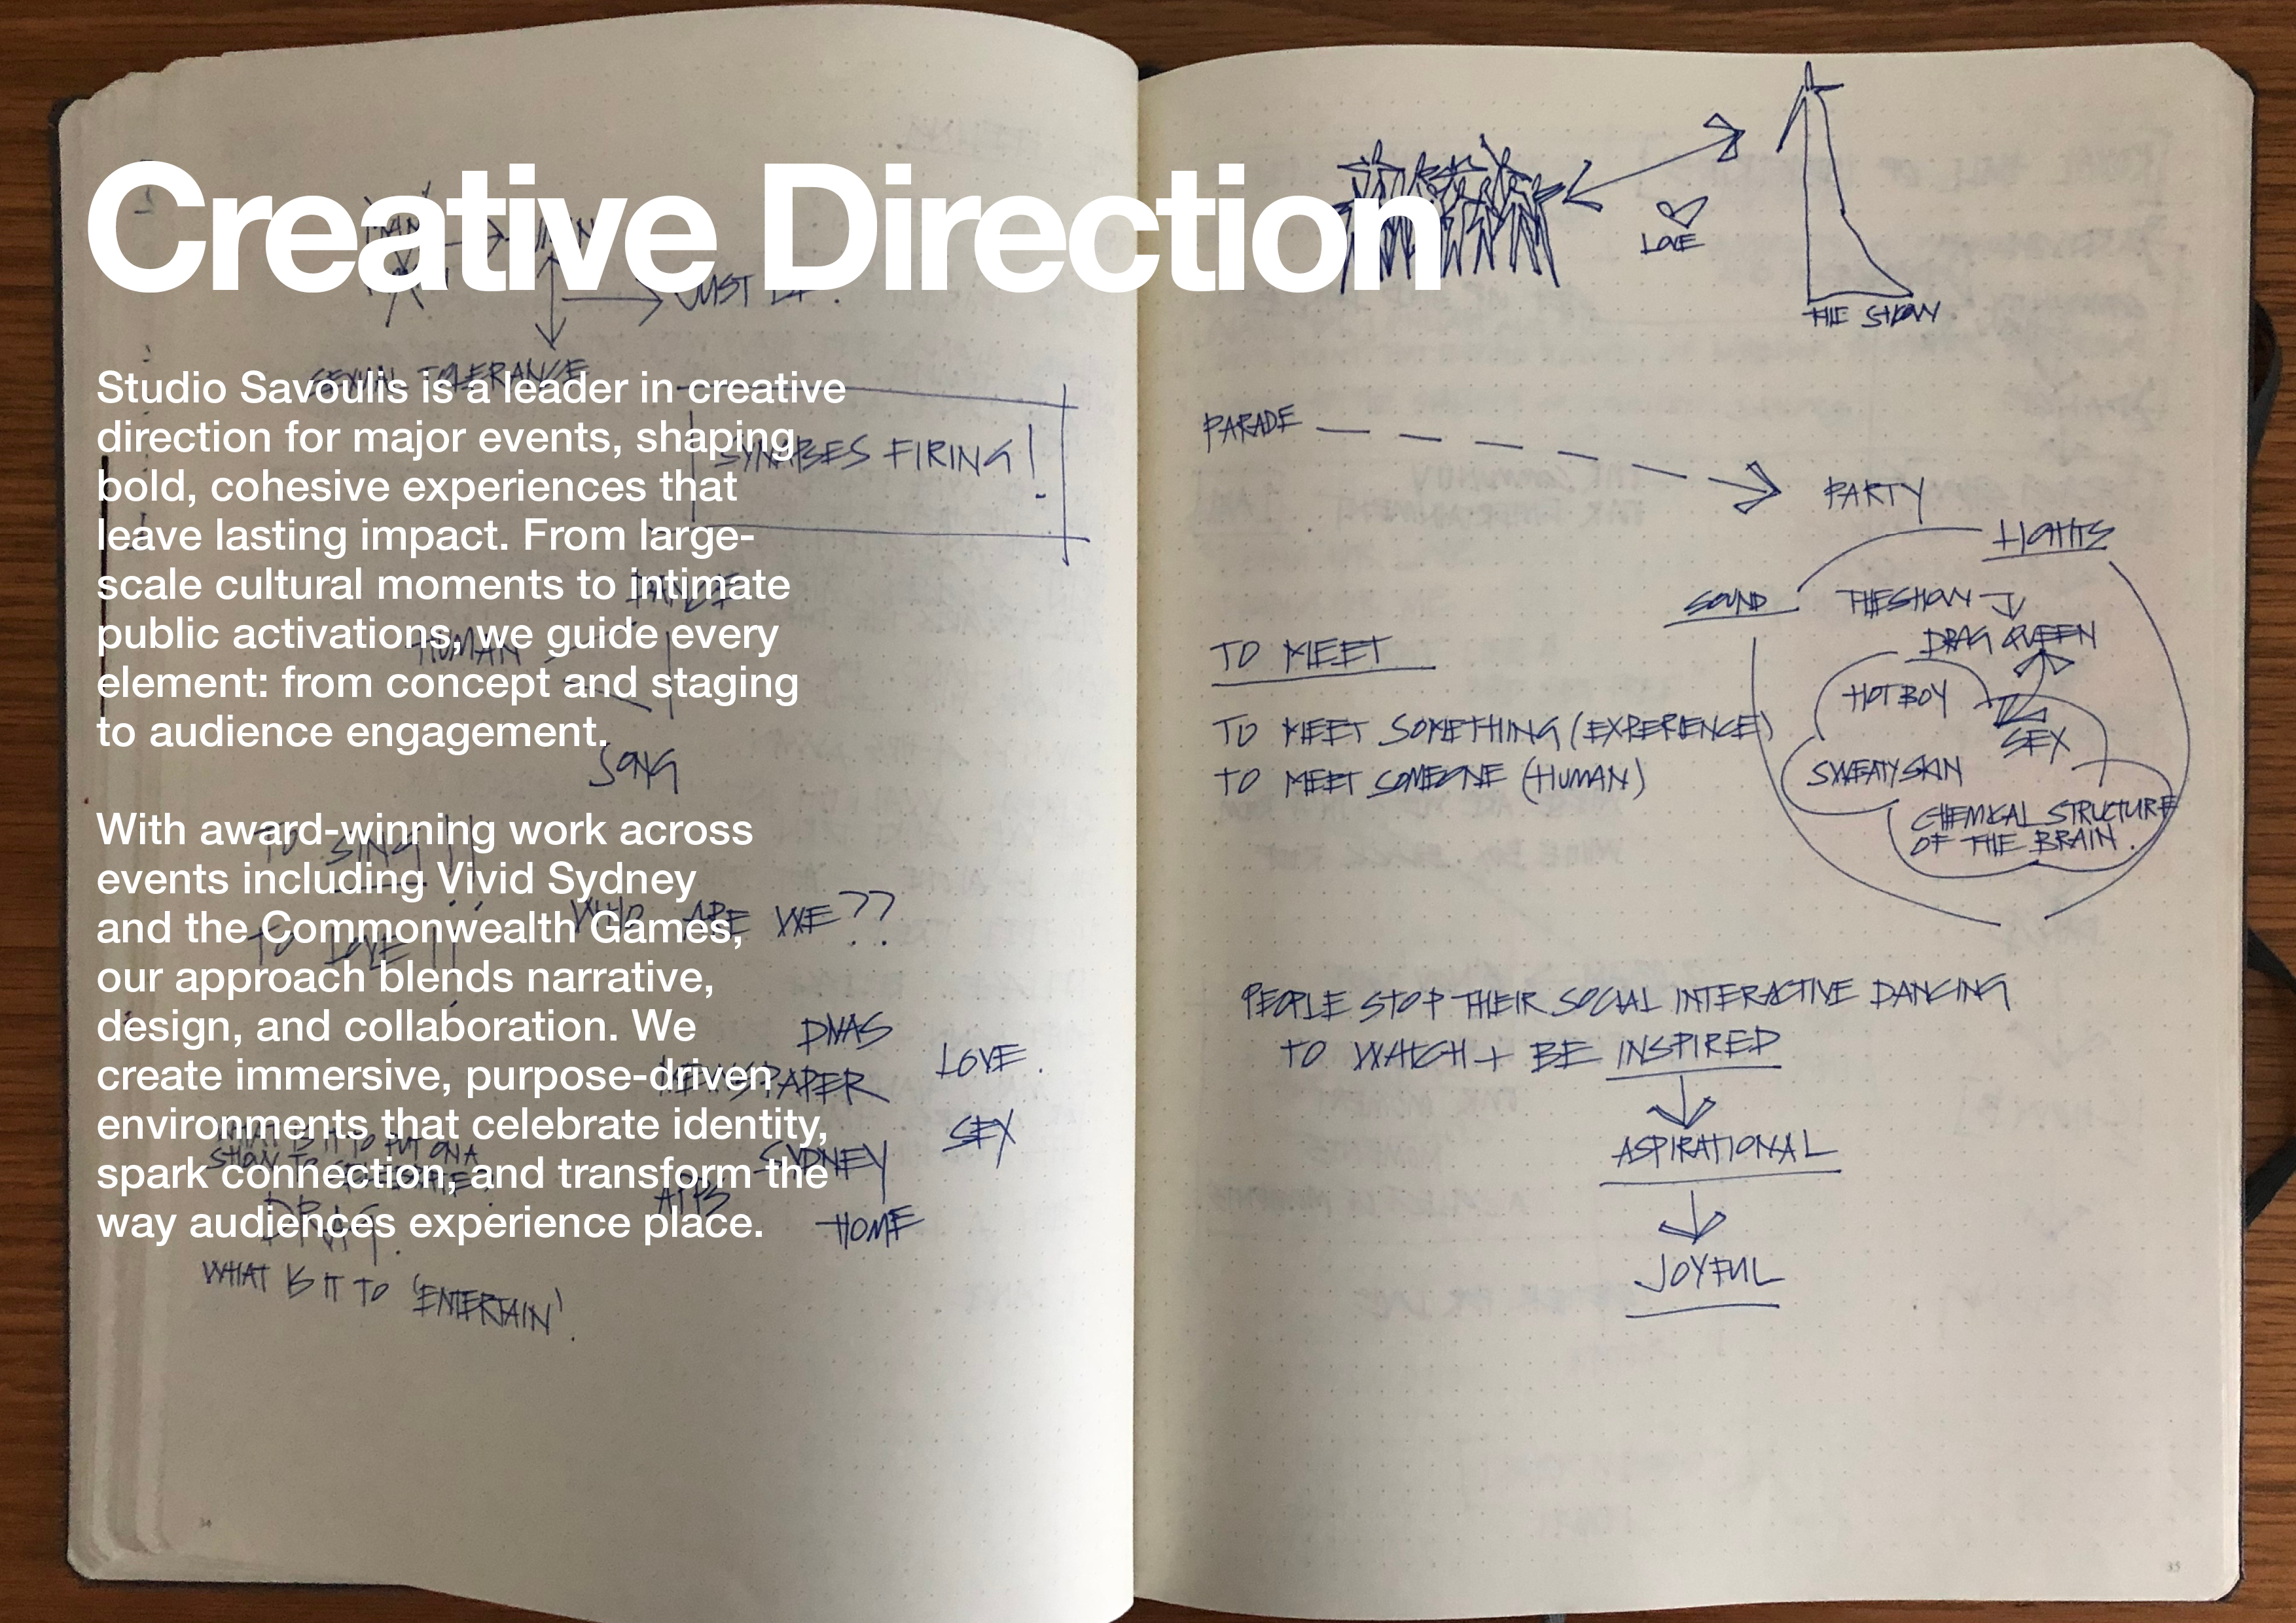 Creative Direction
Studio Savoulis is a leader in creative
direction for major events, shaping
bold, cohesive experiences that
leave lasting impact. From large-
scale cultural moments to intimate
public activations, we guide every
element: from concept and staging
to audience engagement.
With award-winning work across
events including Vivid Sydney
and the Commonwealth Games,
our approach blends narrative,
design, and collaboration. We
create immersive, purpose-driven
environments that celebrate identity,
spark connection, and transform the
way audiences experience place.
MAN
JUST
SEXUAL TOLERANCE
SYNAPSES FIRING!
DANCE
HUMAN
SONG
TO SING!!
WHO ARE WE??
TO LOVE!!
DNAS
NEWSPAPER
LOVE.
SEX
SYDNEY
APPS
HOME
WHAT IS IT TO PUT ON A
SHOW TO
DRAG.
WHAT IS IT TO 'ENTERTAIN'.
34
LOVE
THE SHOW
PARADE
PARTY
LIGHTS
SOUND
THE SHOW
DRAG QUEEN
HOT BOY
SEX
SWEATY SKIN
CHEMICAL STRUCTURE
OF THE BRAIN.
TO MEET
TO MEET SOMETHING (EXPERIENCE)
TO MEET SOMEONE (HUMAN)
PEOPLE STOP THEIR SOCIAL INTERACTIVE DANCING
TO WATCH + BE INSPIRED
ASPIRATIONAL
JOYFUL
35